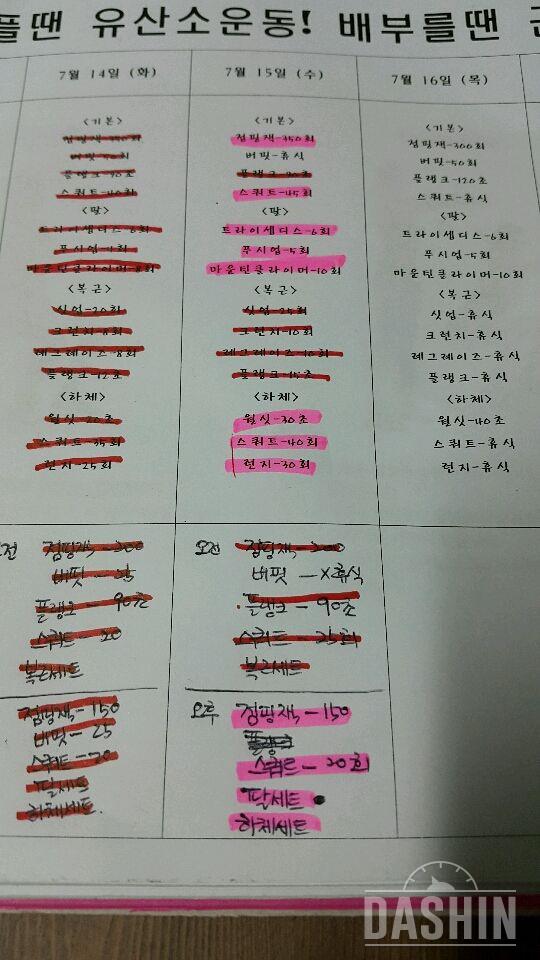 플땐 유산소운동! 배부를땐
7월 14일 (화)
<기본>
점핑잭-350회
버핏-50회
플랭크-90초
스쿼트-40회
<팔>
트라이셉디스-6회
푸시업-4회
마운틴클라이머-8회
<복근>
싯업-20회
크런치-8회
레그레이즈-8회
플랭크-12초
<하체>
월싯-20초
스쿼트-35회
런지-25회
점핑잭-200
버핏-25
플랭크-90초
스쿼트-20
복근세트
점핑잭-150
버핏-25
스쿼트-20
팔세트
하체세트.
7월 15일 (수)
<기본>
점핑잭-350회
버핏-휴식
플랭크-90초
스쿼트-45회
<팔>
트라이셉디스-6회
푸시업-5회
마운틴클라이머-10회
<복근>
싯업-25회
크런치-10회
레그레이즈-10회
플랭크-15초
<하체>
월싯-30초
스쿼트-40회
런지-30회
오전 점핑잭-200
버핏-X휴식
플랭크-90초
스쿼트-25회
복근세트
오후 점핑잭-150
플랭크
스쿼트-20회
팔세트
하체세트
7월 16일 (목)
<기본>
점핑잭-300회
버핏-50회
플랭크-120초
스쿼트-휴식
<팔>
트라이셉디스-6회
푸시업-5회
마운틴클라이머-10회
<복근>
싯업-휴식
크런치-휴식
레그레이즈-휴식
플랭크-휴식
<하체>
월싯-40초
스쿼트-휴식
런지-휴식
DASHIN